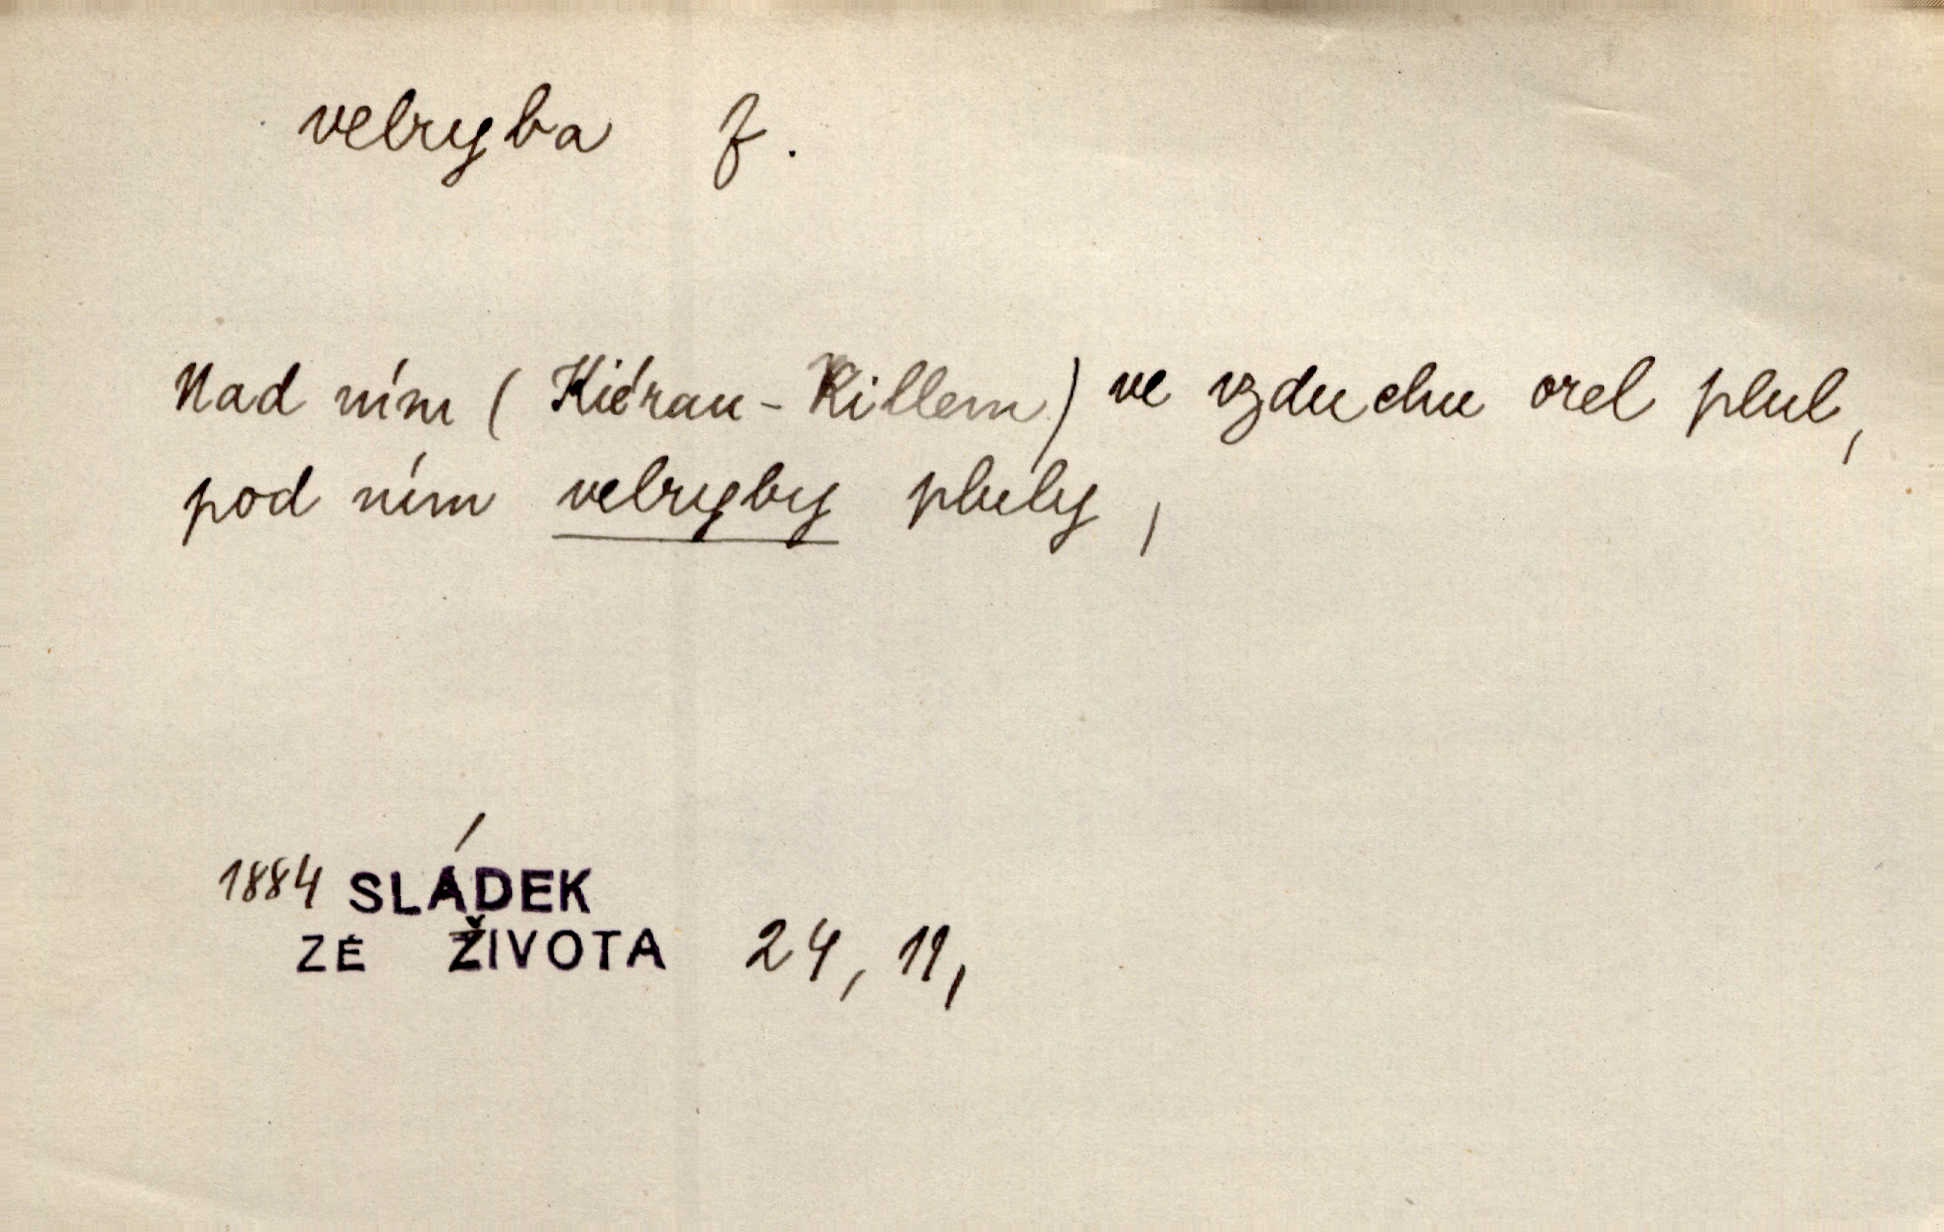 velryba f.
Nad ním (Kiéran-Killem) ve vzduchu orel plul,
pod ním velryby pluly,
1884 SLÁDEK
ZE ŽIVOTA 24, 11,